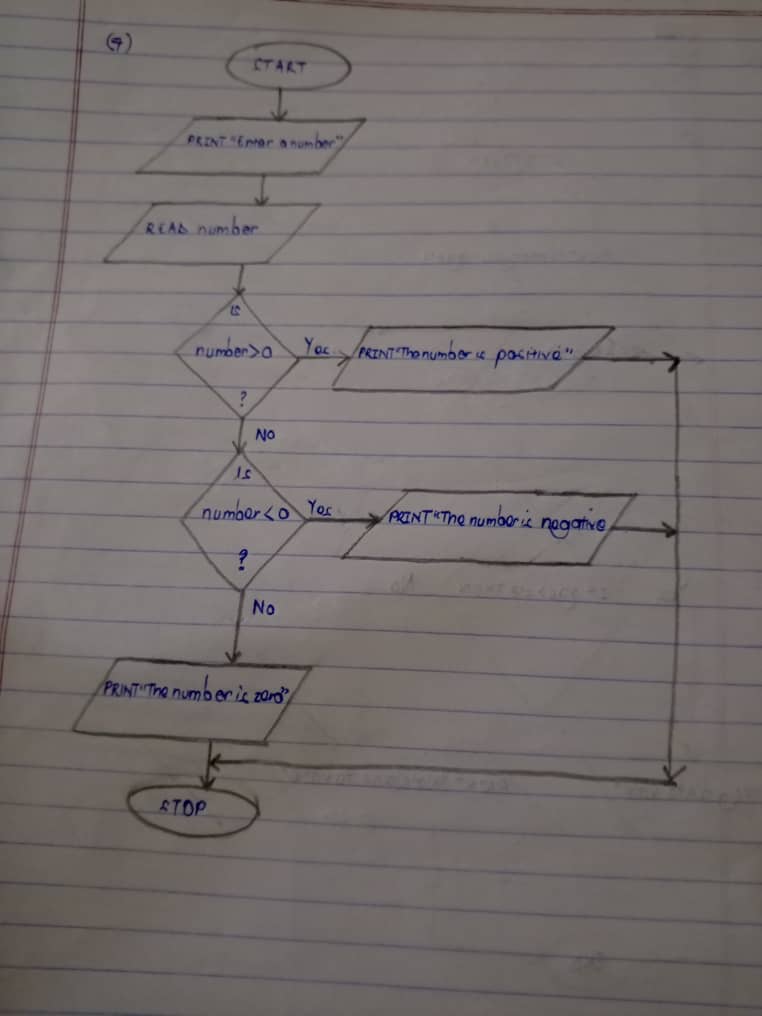 (4)
START
PRINT "Enter a number"
READ number
Is
number>0
?
Yes
PRINT "The number is positive"
No
Is
number<0
?
Yes
PRINT "The number is negative
No
PRINT "The number is zero"
STOP